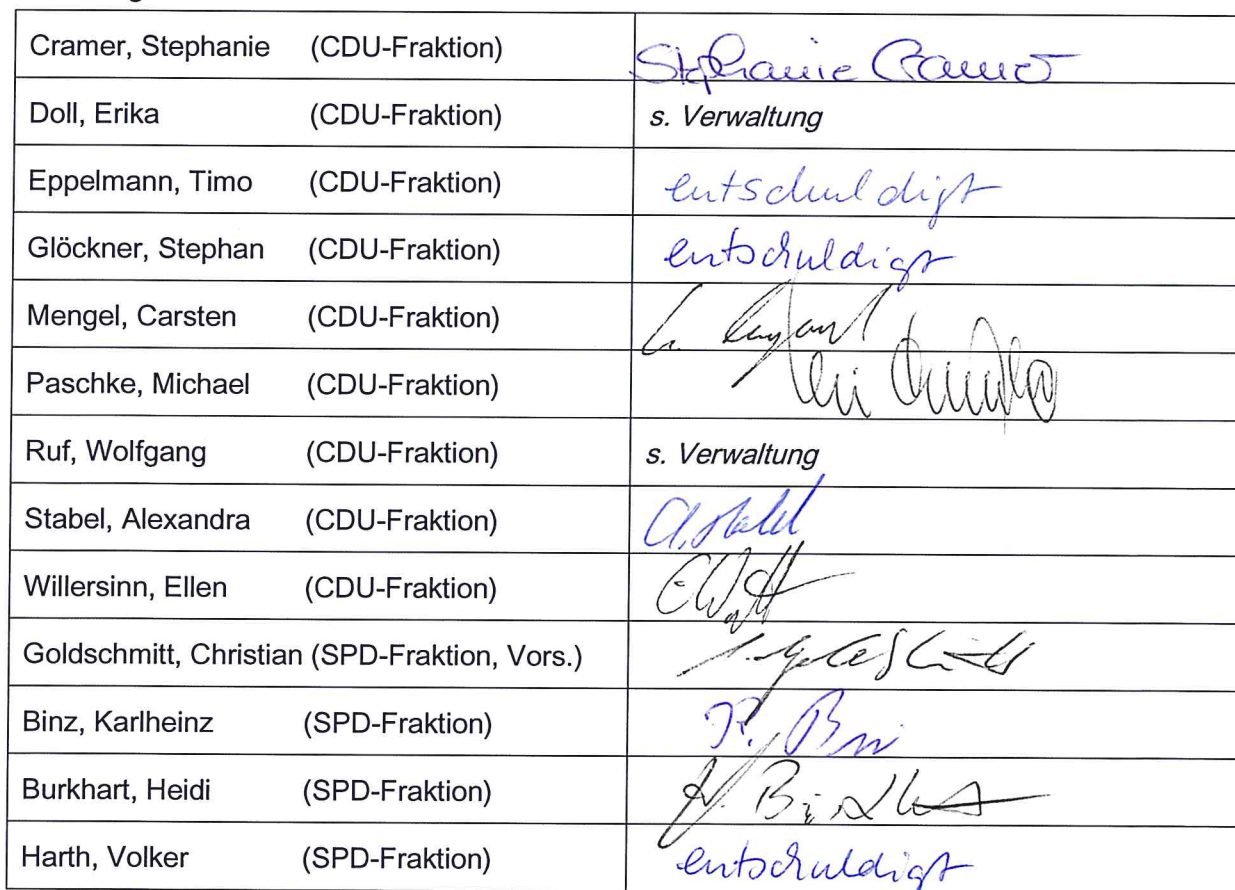 Cramer, Stephanie (CDU-Fraktion) Stephanie Cramer
Doll, Erika (CDU-Fraktion) s. Verwaltung
Eppelmann, Timo (CDU-Fraktion) entschuldigt
Glöckner, Stephan (CDU-Fraktion) entschuldigt
Mengel, Carsten (CDU-Fraktion)
Paschke, Michael (CDU-Fraktion)
Ruf, Wolfgang (CDU-Fraktion) s. Verwaltung
Stabel, Alexandra (CDU-Fraktion) A. Stabel
Willersinn, Ellen (CDU-Fraktion)
Goldschmitt, Christian (SPD-Fraktion, Vors.)
Binz, Karlheinz (SPD-Fraktion)
Burkhart, Heidi (SPD-Fraktion)
Harth, Volker (SPD-Fraktion) entschuldigt